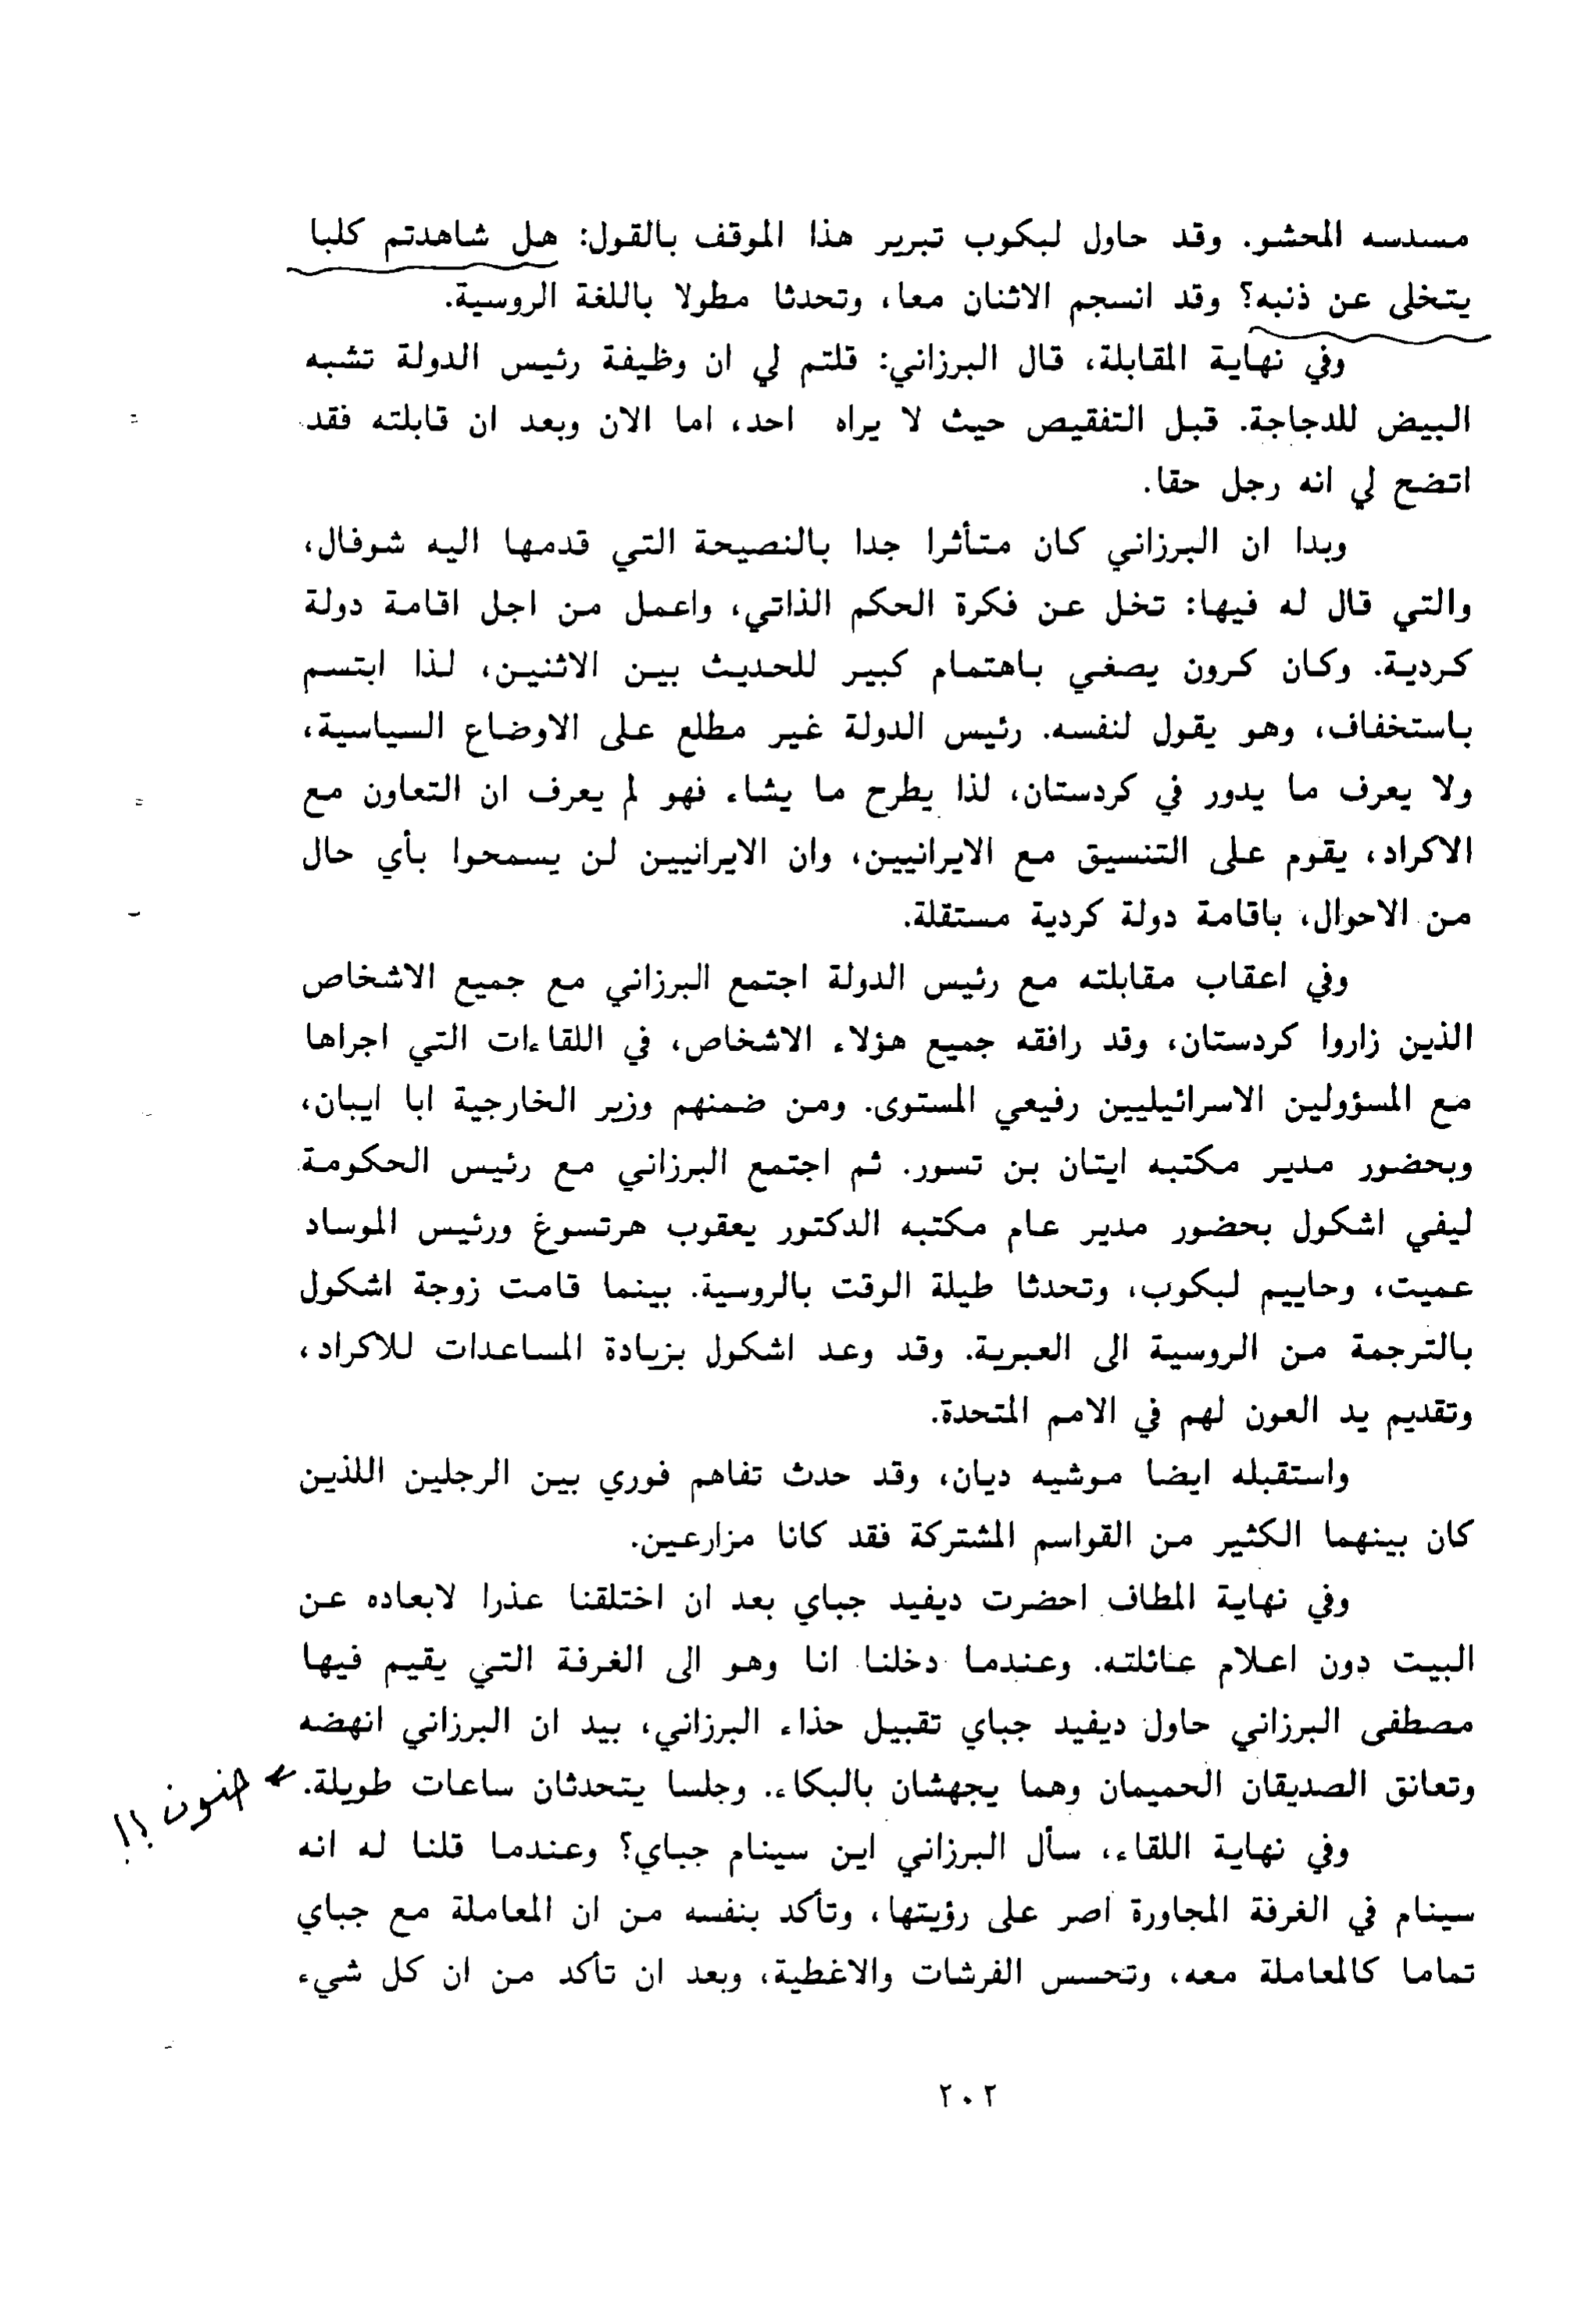 مسدسه المحشو. وقد حاول لبكوب تبرير هذا الموقف بالقول: هل شاهدتم كلبا
يتخلى عن ذنبه؟ وقد انسجم الاثنان معا، وتحدثا مطولا باللغة الروسية.
وفي نهاية المقابلة، قال البرزاني: قلتم لي ان وظيفة رئيس الدولة تشبه
البيض للدجاجة. قبل التفقيص حيث لا يراه احد، اما الان وبعد ان قابلته فقد
اتضح لي انه رجل حقا.
وبدا ان البرزاني كان متأثرا جدا بالنصيحة التي قدمها اليه شوفال،
والتي قال له فيها: تخل عن فكرة الحكم الذاتي، واعمل من اجل اقامة دولة
كردية. وكان كرون يصغي باهتمام كبير للحديث بين الاثنين، لذا ابتسم
باستخفاف، وهو يقول لنفسه. رئيس الدولة غير مطلع على الاوضاع السياسية،
ولا يعرف ما يدور في كردستان، لذا يطرح ما يشاء فهو لم يعرف ان التعاون مع
الاكراد، يقوم على التنسيق مع الايرانيين، وان الايرانيين لن يسمحوا بأي حال
من الاحوال، باقامة دولة كردية مستقلة.
وفي اعقاب مقابلته مع رئيس الدولة اجتمع البرزاني مع جميع الاشخاص
الذين زاروا كردستان، وقد رافقه جميع هؤلاء الاشخاص، في اللقاءات التي اجراها
مع المسؤولين الاسرائيليين رفيعي المستوى. ومن ضمنهم وزير الخارجية ابا ايبان،
وبحضور مدير مكتبه ايتان بن تسور. ثم اجتمع البرزاني مع رئيس الحكومة
ليفي اشكول بحضور مدير عام مكتبه الدكتور يعقوب هرتسوغ ورئيس الموساد
عميت، وحاييم لبكوب، وتحدثا طيلة الوقت بالروسية. بينما قامت زوجة اشكول
بالترجمة من الروسية الى العبرية. وقد وعد اشكول بزيادة المساعدات للاكراد،
وتقديم يد العون لهم في الامم المتحدة.
واستقبله ايضا موشيه ديان، وقد حدث تفاهم فوري بين الرجلين اللذين
كان بينهما الكثير من القواسم المشتركة فقد كانا مزارعين.
وفي نهاية المطاف احضرت ديفيد جباي بعد ان اختلقنا عذرا لابعاده عن
البيت دون اعلام عائلته. وعندما دخلنا انا وهو الى الغرفة التي يقيم فيها
مصطفى البرزاني حاول ديفيد جباي تقبيل حذاء البرزاني، بيد ان البرزاني انهضه
وتعانق الصديقان الحميمان وهما يجهشان بالبكاء. وجلسا يتحدثان ساعات طويلة.
جنون!!
وفي نهاية اللقاء، سأل البرزاني اين سينام جباي؟ وعندما قلنا له انه
سينام في الغرفة المجاورة اصر على رؤيتها، وتأكد بنفسه من ان المعاملة مع جباي
تماما كالمعاملة معه، وتحسس الفرشات والاغطية، وبعد ان تأكد من ان كل شيء
٢٠٢